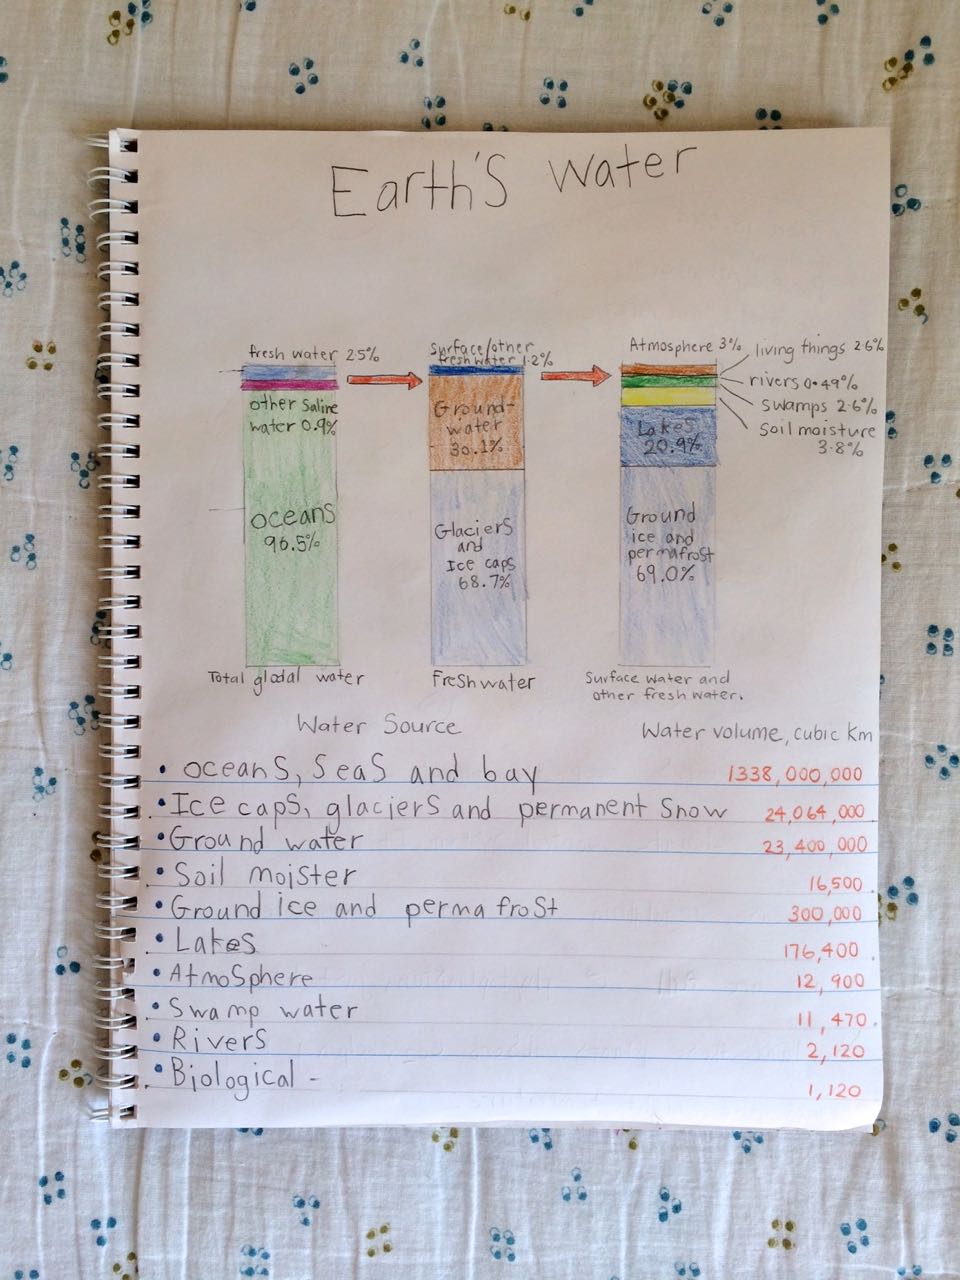 Earth's Water
fresh water 2.5%
other Saline
water 0.9%
oceans
96.5%
Total glodal water
Surface/other
fresh water 1.2%
Ground-
water
30.1%
Glaciers
and
Ice caps
68.7%
Freshwater
Atmosphere 3%
living things 2.6%
rivers 0.49%
swamps 2.6%
Soil moisture
3.8%
Lakes
20.9%
Ground
ice and
permafrost
69.0%
Surface water and
other fresh water.
Water Source Water volume, cubic Km
• oceans, Seas and bay 1338,000,000
• Ice caps, glaciers and permanent Snow 24,064,000
• Ground water 23,400,000
• Soil mojster 16,500
• Ground ice and permafrost 300,000
• Lakes 176,400
• Atmosphere 12,900
• Swamp water 11,470
• Rivers 2,120
• Biological - 1,120